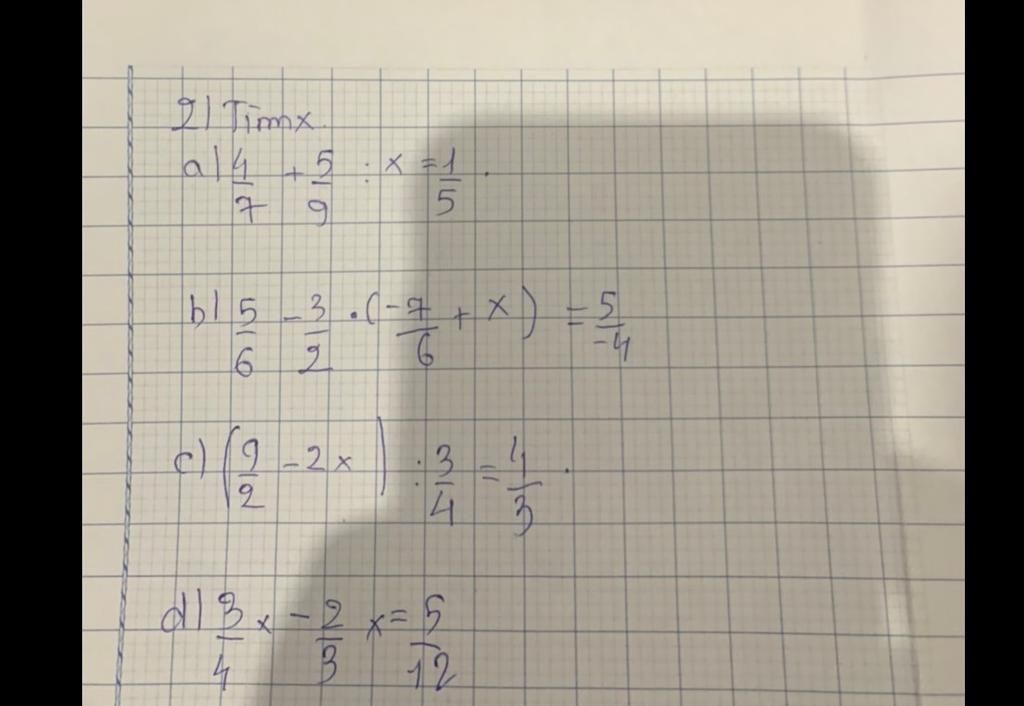 2) Tìm x.
a) 4/7 + 5/9 : x = 1/5 .
b) 5/6 - 3/2 . (-7/6 + x) = 5/-4
c) (9/2 - 2x) : 3/4 = 4/3 .
d) 3/4 x - 2/3 x = 5/12